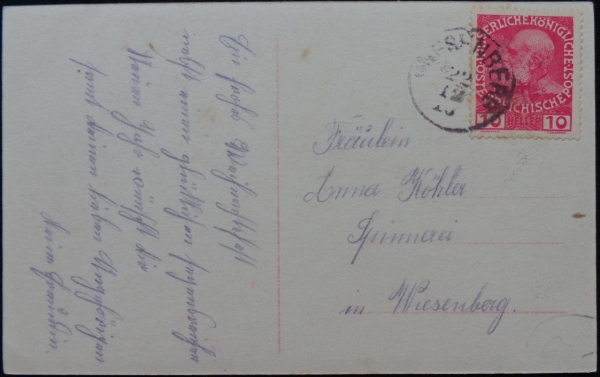 Ein frohes Weihnachtsfest
nebst einem glücklichen
Neuen Jahr wünscht dir
samt deinen lieben Angehörigen
deine
Fräulein
Anna Köhler
Spinnerei
in Wiesenberg.
WIESENBERG
22
12
KAISERLICHE KÖNIGLICHE
ÖSTERREICHISCHE POST
10 HELLER 10